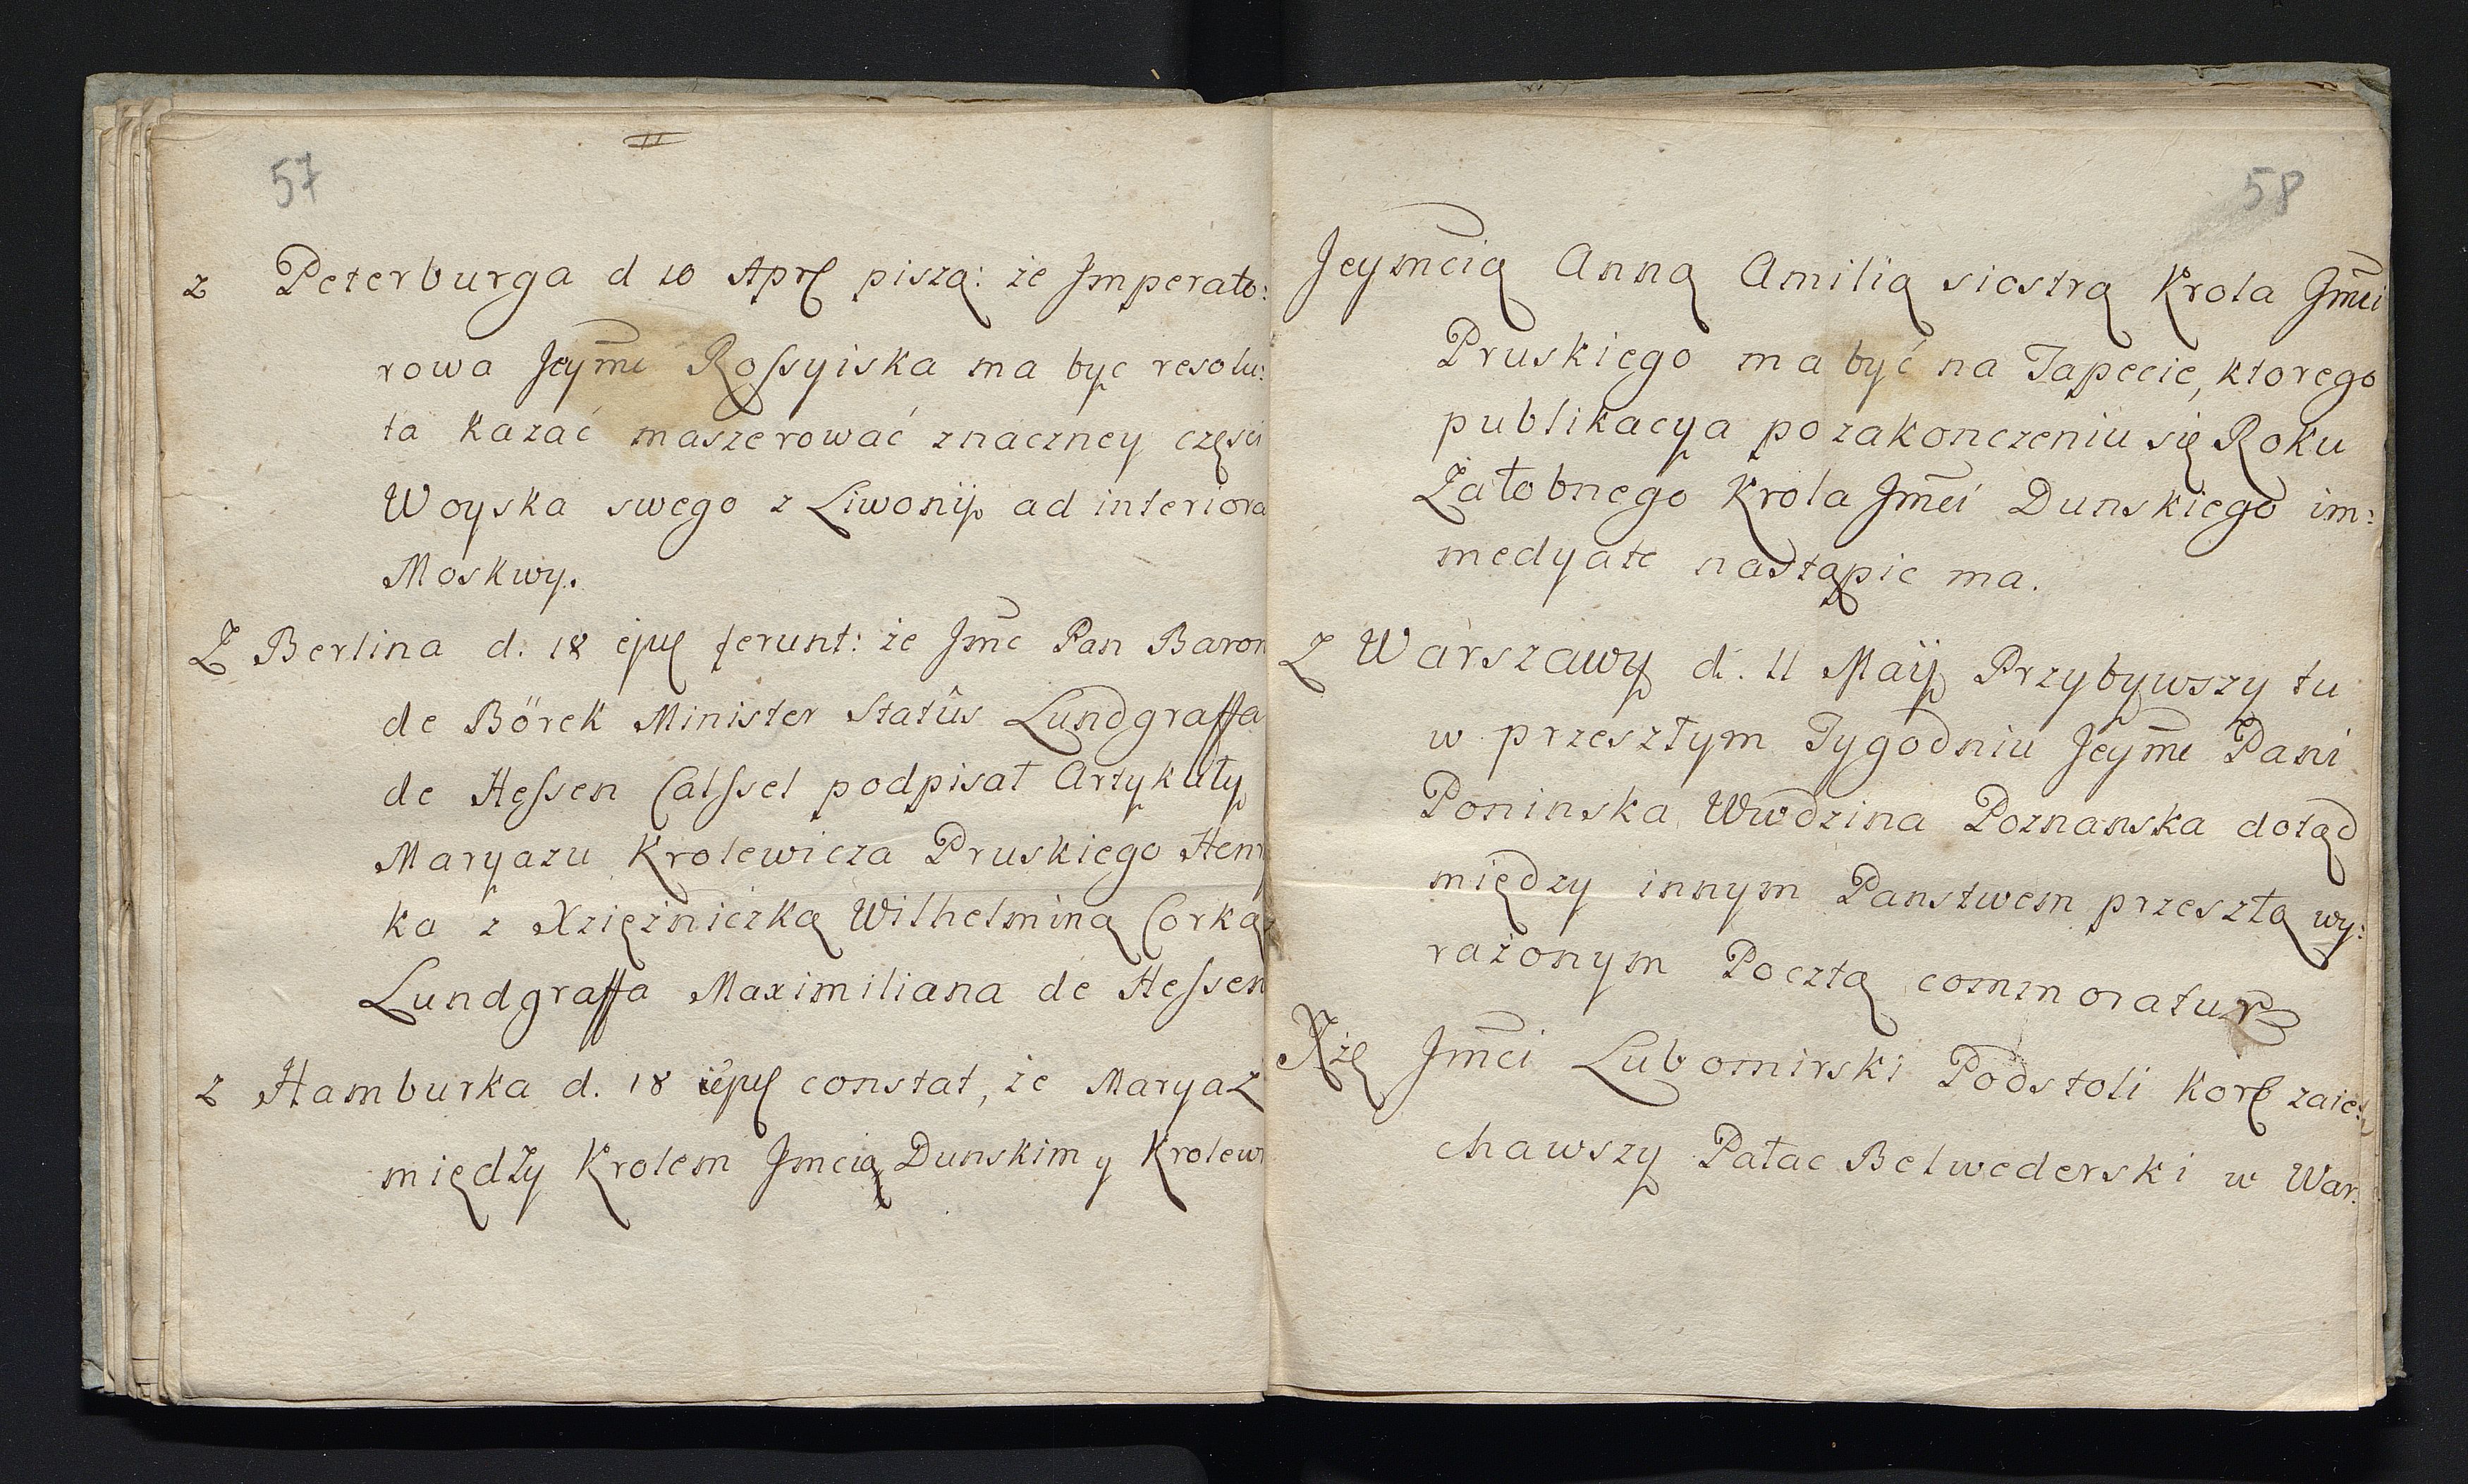 57
z Peterburga d 10 Apr piszą: że Imperato:
rowa Jeymć Rossyiska ma byc resolu:
ta kazać maszerować znaczney części
Woyska swego z Liwonij ad interiora
Moskwy.
Z Berlina d. 18 ejus ferunt: że Jmć Pan Baron
de Börek Minister Statûs Lundgraffa
de Hessen Calssel podpisał Artykuły
Maryazu Krolewicza Pruskiego Henry
ka z Xziężniczką Wilhelminą Corką
Lundgraffa Maximiliana de Hessen
z Hamburka d. 18 ejus constat, że Maryaz
między Krolem Jmcią Dunskim y Krolew
58
Jeymcią Anną Amilią siostrą Krola Jmci
Pruskiego ma być na Tapecie, ktorego
publikacya po zakonczeniu się Roku
Żałobnego Krola Jmci Dunskiego im:
medyate nastąpic ma.
Z Warszawy d. 11 Maij Przybywszy tu
w przeszłym Tygodniu Jeymć Pani
Poninska Wwdzina Poznanska dotąd
między innym Panstwem przeszłą wy:
rażonym Pocztą commoratur
Xżę Jmci Lubomirski Podstoli Kor zaie:
chawszy Pałac Belwederski w War: